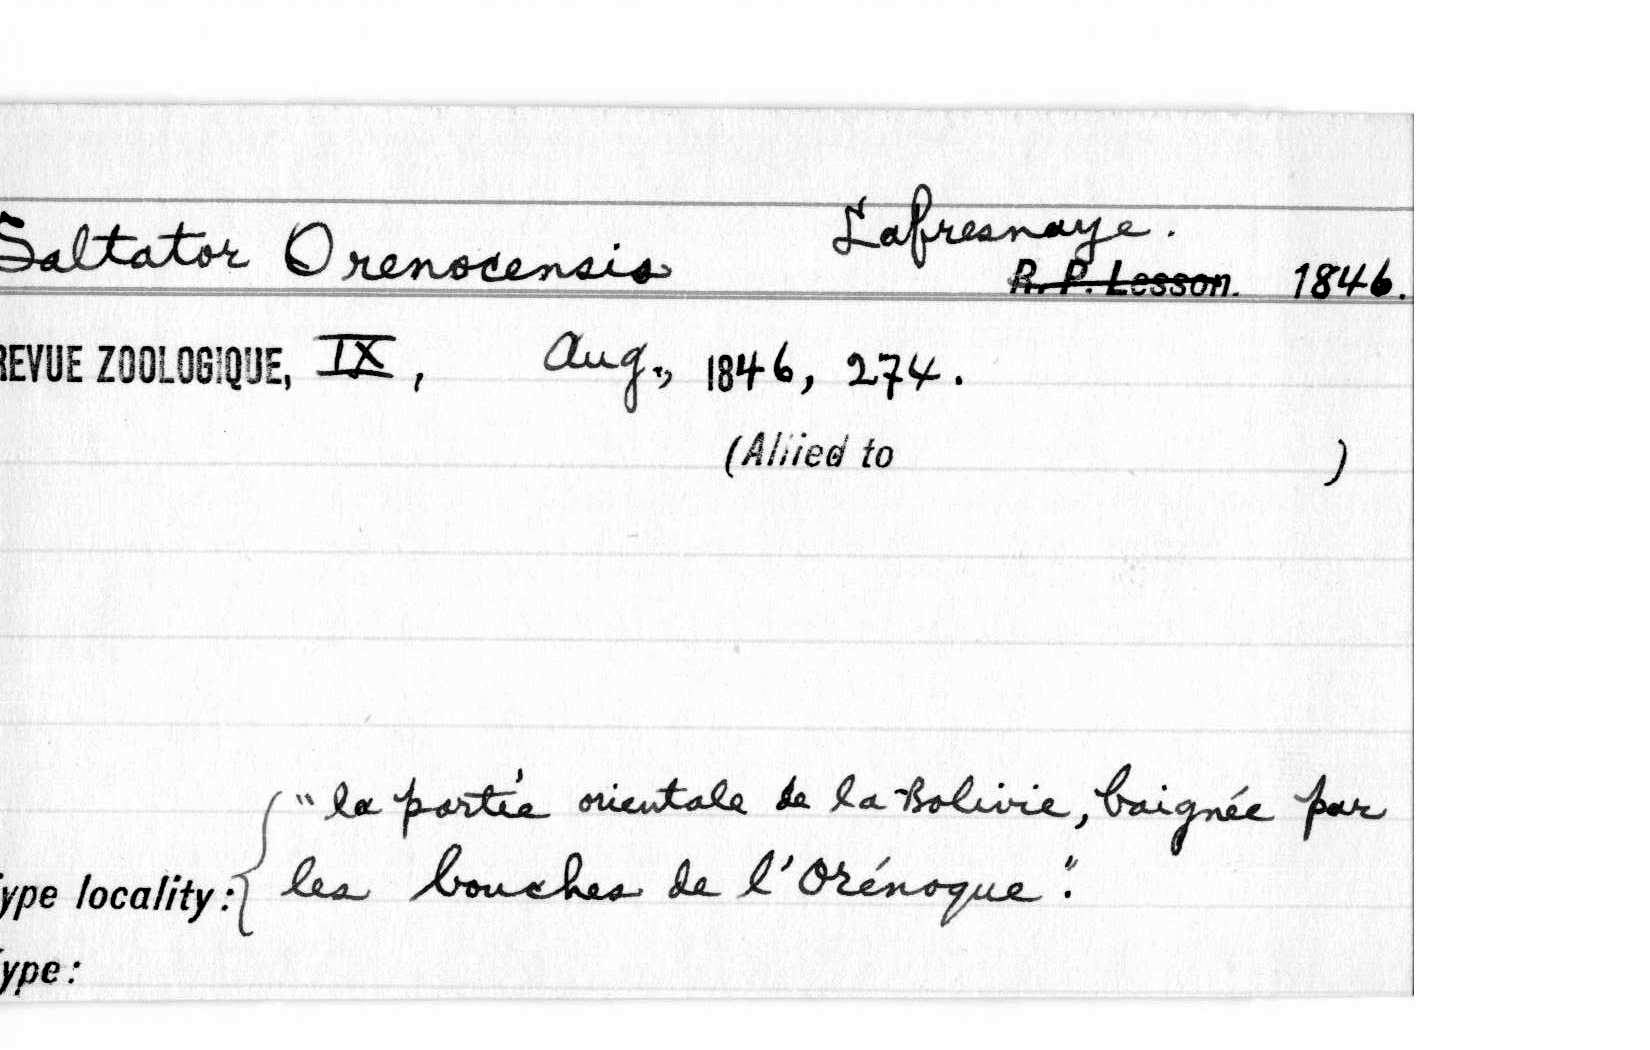 Saltator Orenocensis Lafresnaye.
R. P. Lesson. 1846.
REVUE ZOOLOGIQUE, IX, Aug., 1846, 274.
(Allied to )
"la partie orientale de la Bolivie, baignée par
ype locality: les bouches de l'Orénoque".
ype: